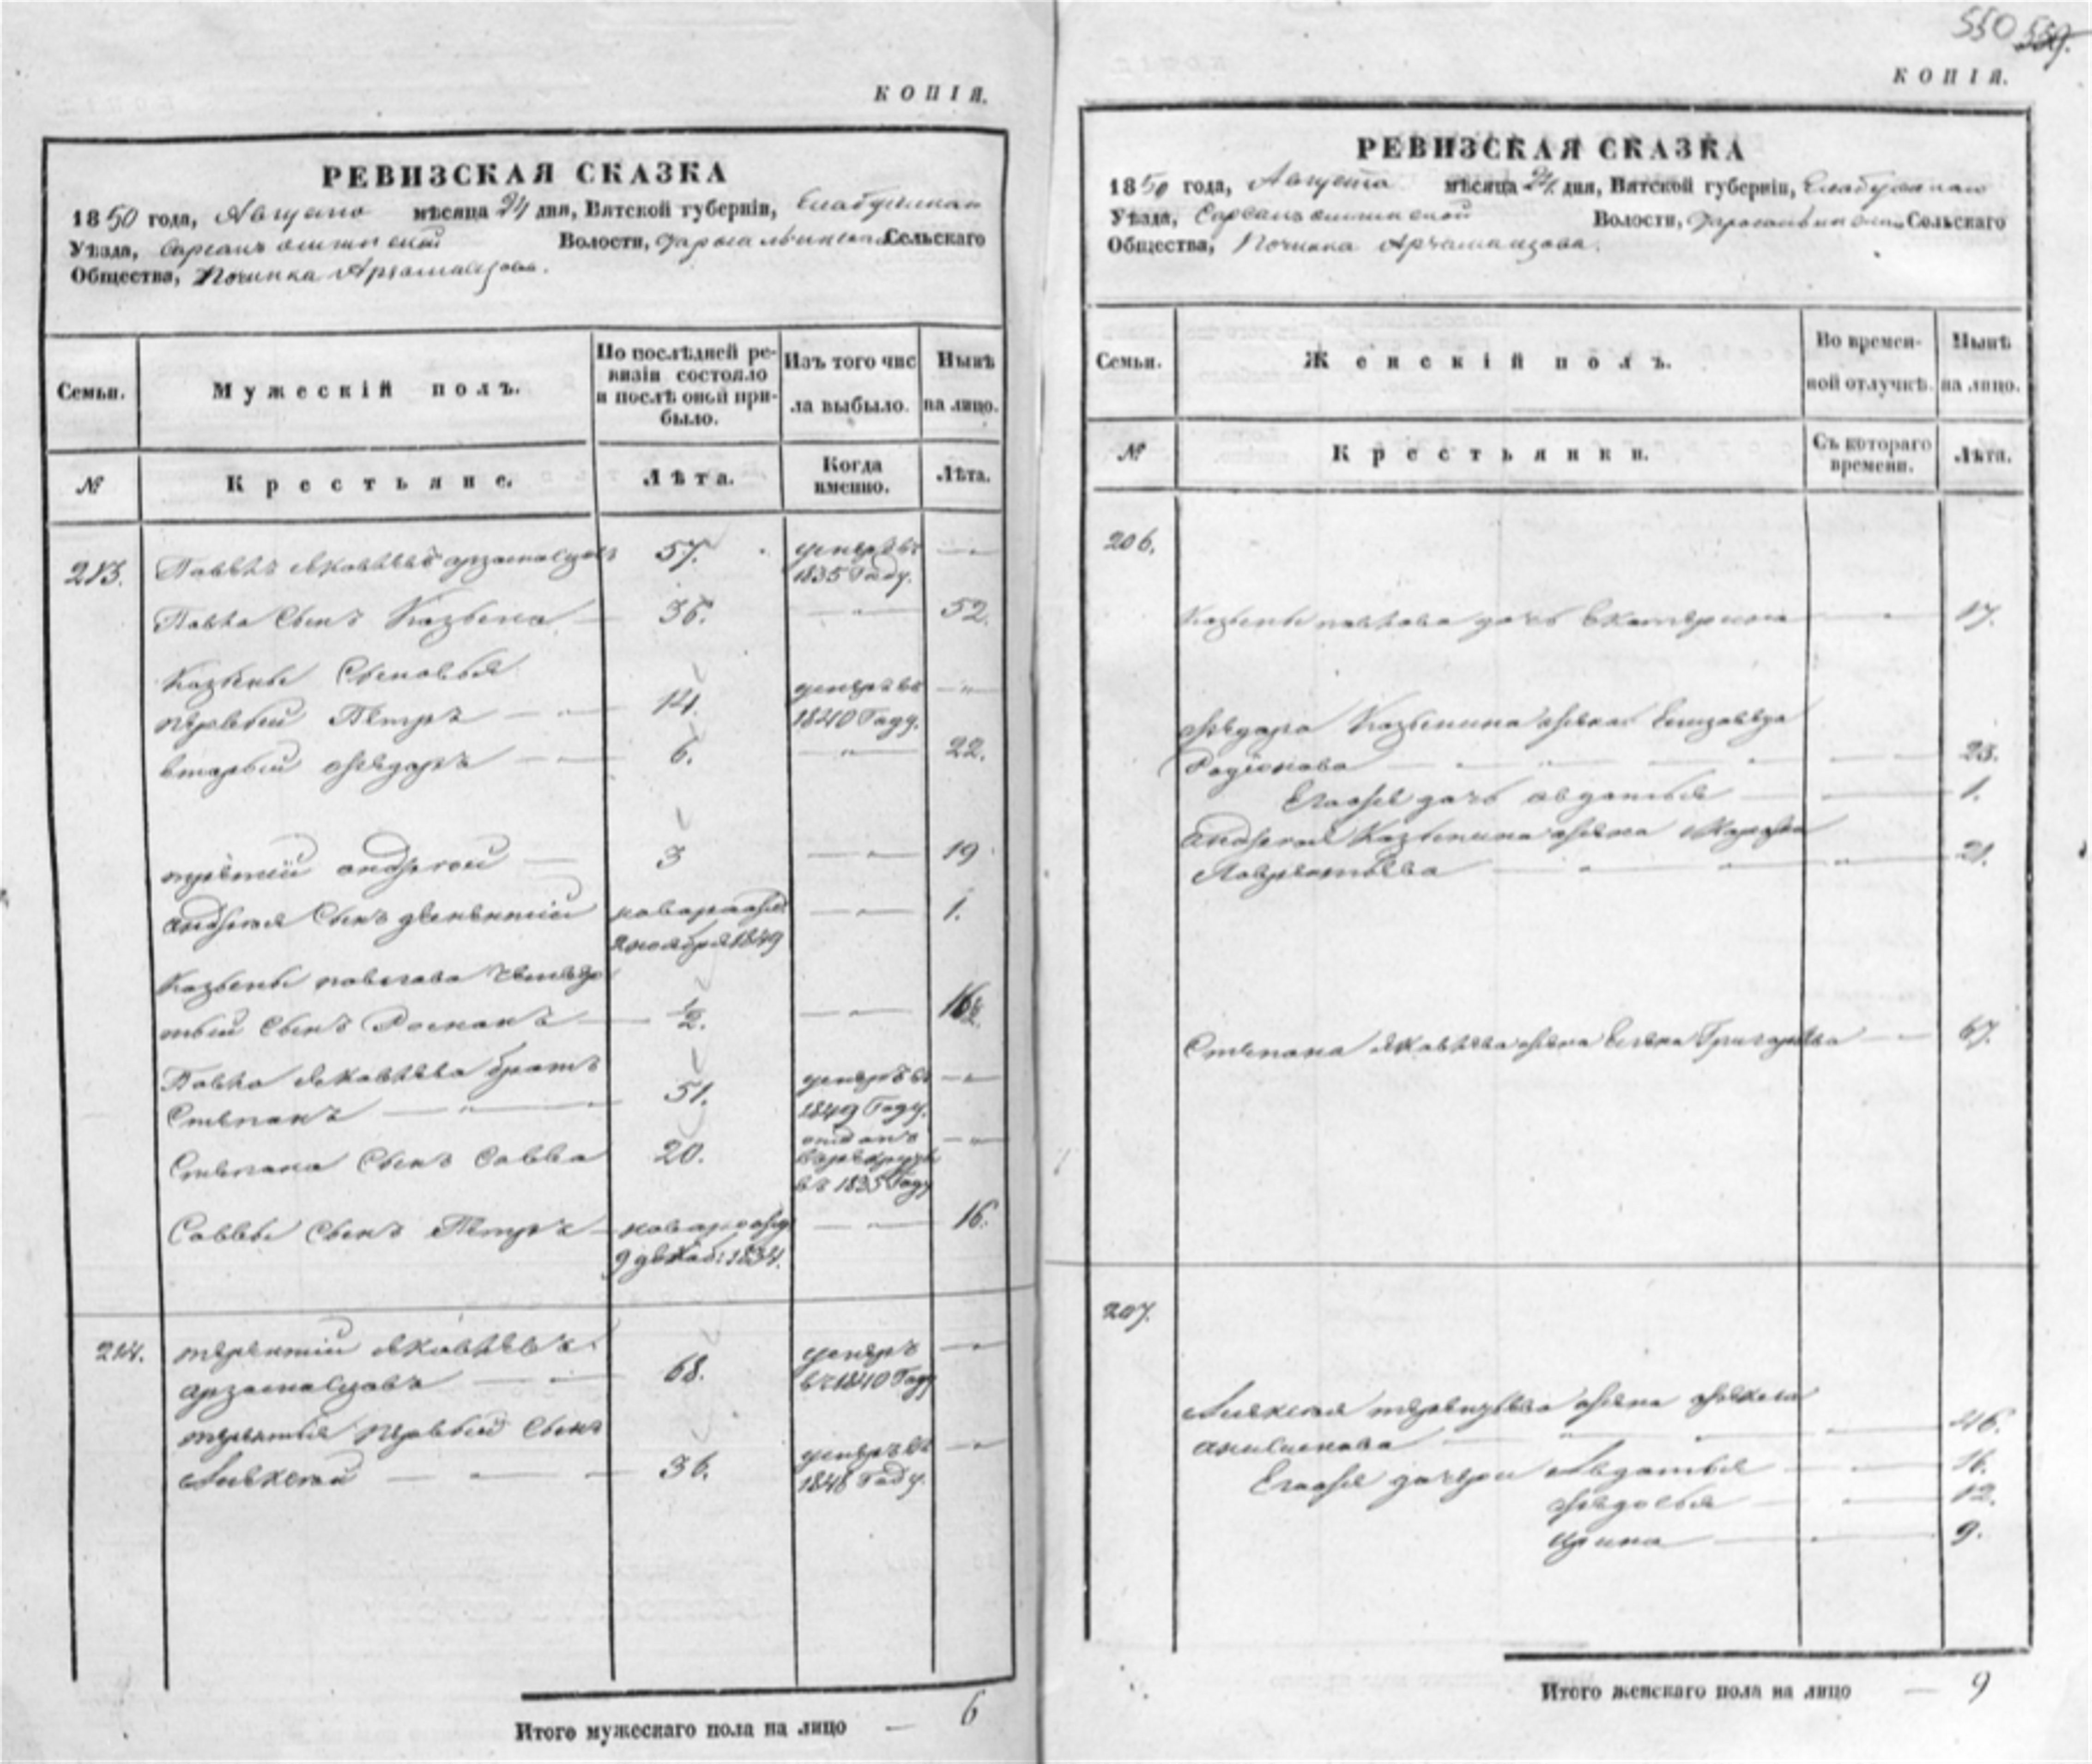 550 559.
КОПІЯ.
РЕВИЗСКАЯ СКАЗКА
1850 года, Августа мѣсяца 24 дня, Вятской губерніи,
Уѣзда, Волости, Сельскаго
Общества, Починка
Семьи.
Мужескій полъ.
По послѣдней ревизіи состояло и послѣ оной прибыло.
Изъ того числа выбыло.
Нынѣ на лицо.
№
Крестьяне.
Лѣта.
Когда именно.
Лѣта.
213. Павелъ Яковлевъ 57. умеръ въ
1835 году.
Павла сынъ Козьма 36. 52.
Козьмы сыновья
первый Петръ 14. умеръ въ 1840 году.
вторый Федоръ 6. 22.
третій Андрей 3 19
Андрея сынъ новорожд. 1.
ноября 1849
Козьмы Павлова четвер
тый сынъ Романъ 1/2. 16 1/2.
Павла Яковлева братъ умеръ въ
Степанъ 51. 1849 году.
Степана сынъ Савва 20. отданъ
въ рекруты
въ 1835 году
Саввы сынъ Петръ новорожд. 16.
9 декаб: 1834.
214. Терентій Яковлевъ умеръ
Арзамасцовъ 68. въ 1840 году
Терентья первый сынъ
Алексей 36. умеръ въ
1848 году.
Итого мужескаго пола на лицо — 6
КОПІЯ.
РЕВИЗСКАЯ СКАЗКА
1850 года, Августа мѣсяца 24 дня, Вятской губерніи,
Уѣзда, Волости, Сельскаго
Общества, Починка
Семьи.
Женскій полъ.
Во временной отлучкѣ.
Нынѣ на лицо.
№
Крестьянки.
Съ котораго времени.
Лѣта.
206.
Козьмы Павлова дочь Екатерина 17.
Федора Козьмина жена Елизавета
Родіонова 23.
Егожъ дочь Авдотья 1.
Андрея Козьмина жена
Лаврентьева 21.
Степана Яковлева жена Елена Григорьева 67.
207.
Алексея Терентьева жена Фекла
Анисимова 46.
Егожъ дочери Авдотья 16.
Федосья 12.
Ирина 9.
Итого женскаго пола на лицо — 9